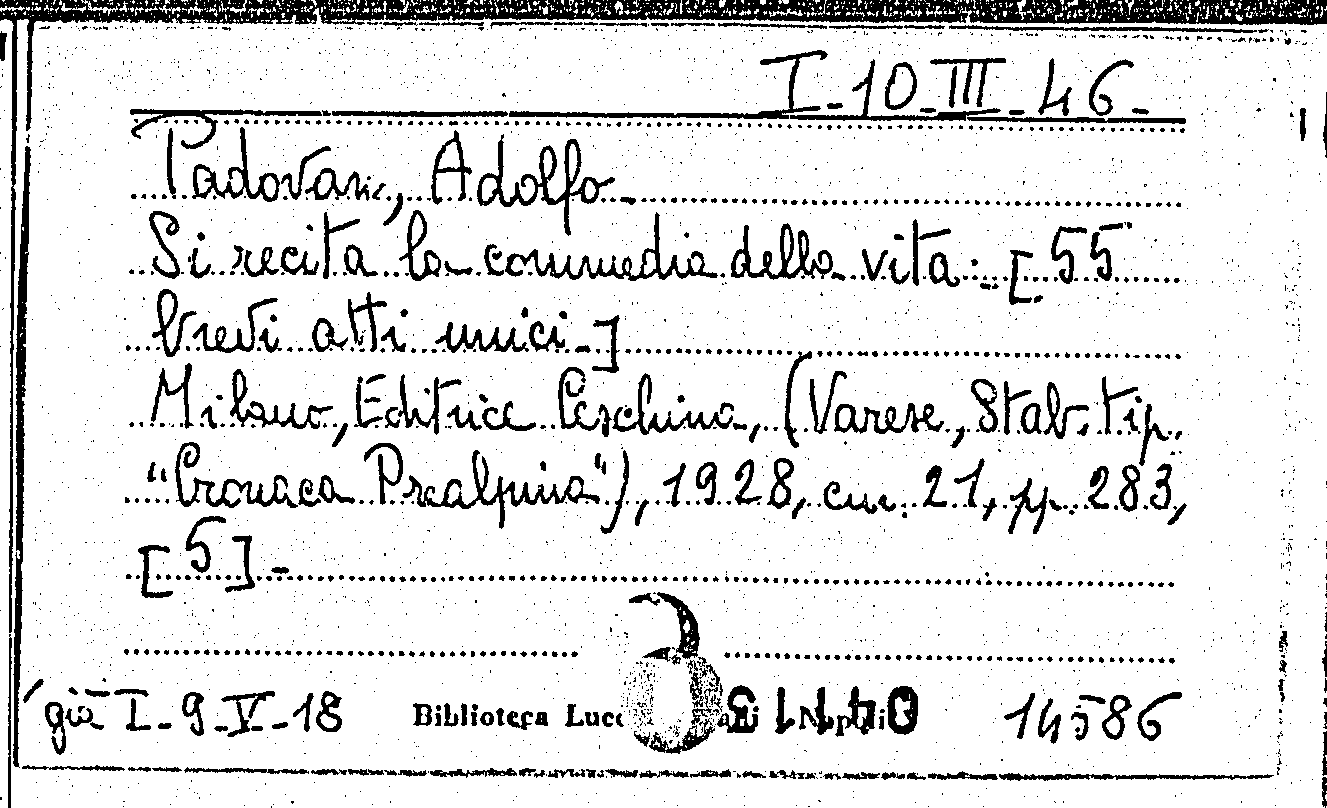 I-10-III-46-
Padovan, Adolfo-
Si recita la commedia della vita:- [55
brevi atti unici-]
Milano, Editrice Ceschina, (Varese, Stab. tip.
"Cronaca Prealpina"), 1928, cm. 21, pp. 283,
[5]-
già I-9-V-18 Biblioteca 14586